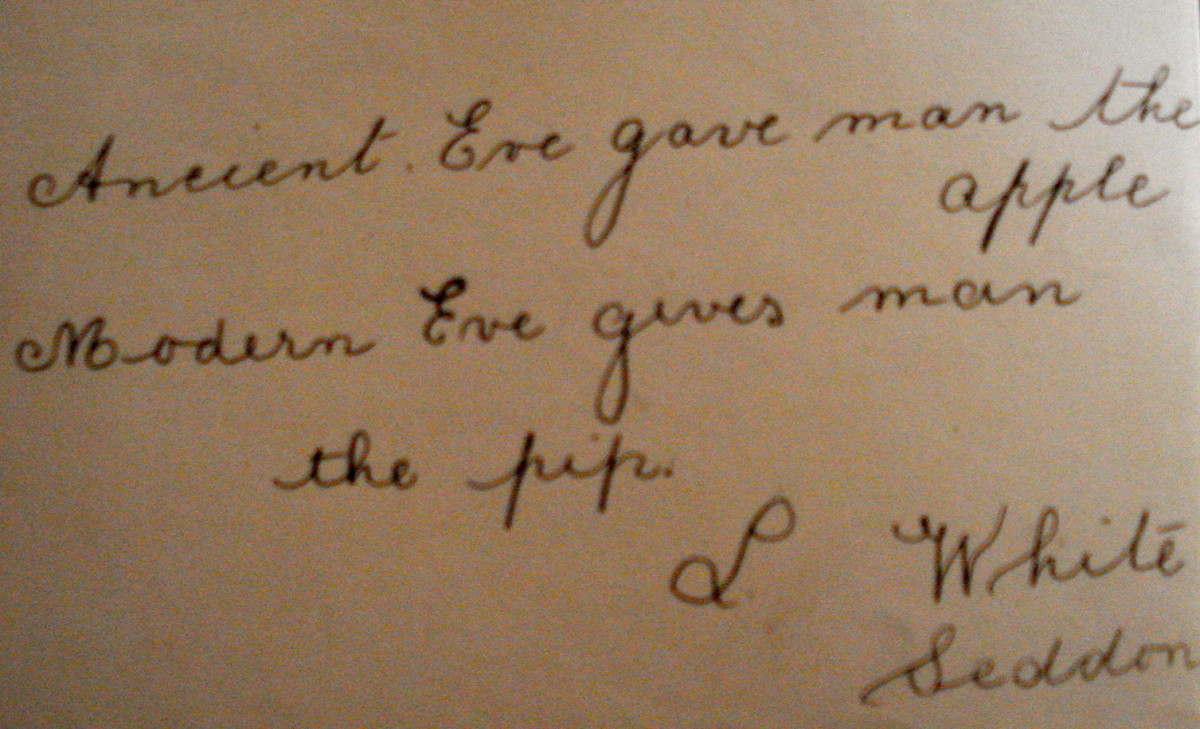 Ancient. Eve gave man the
apple
Modern Eve gives man
the pip.
L White
Seddon